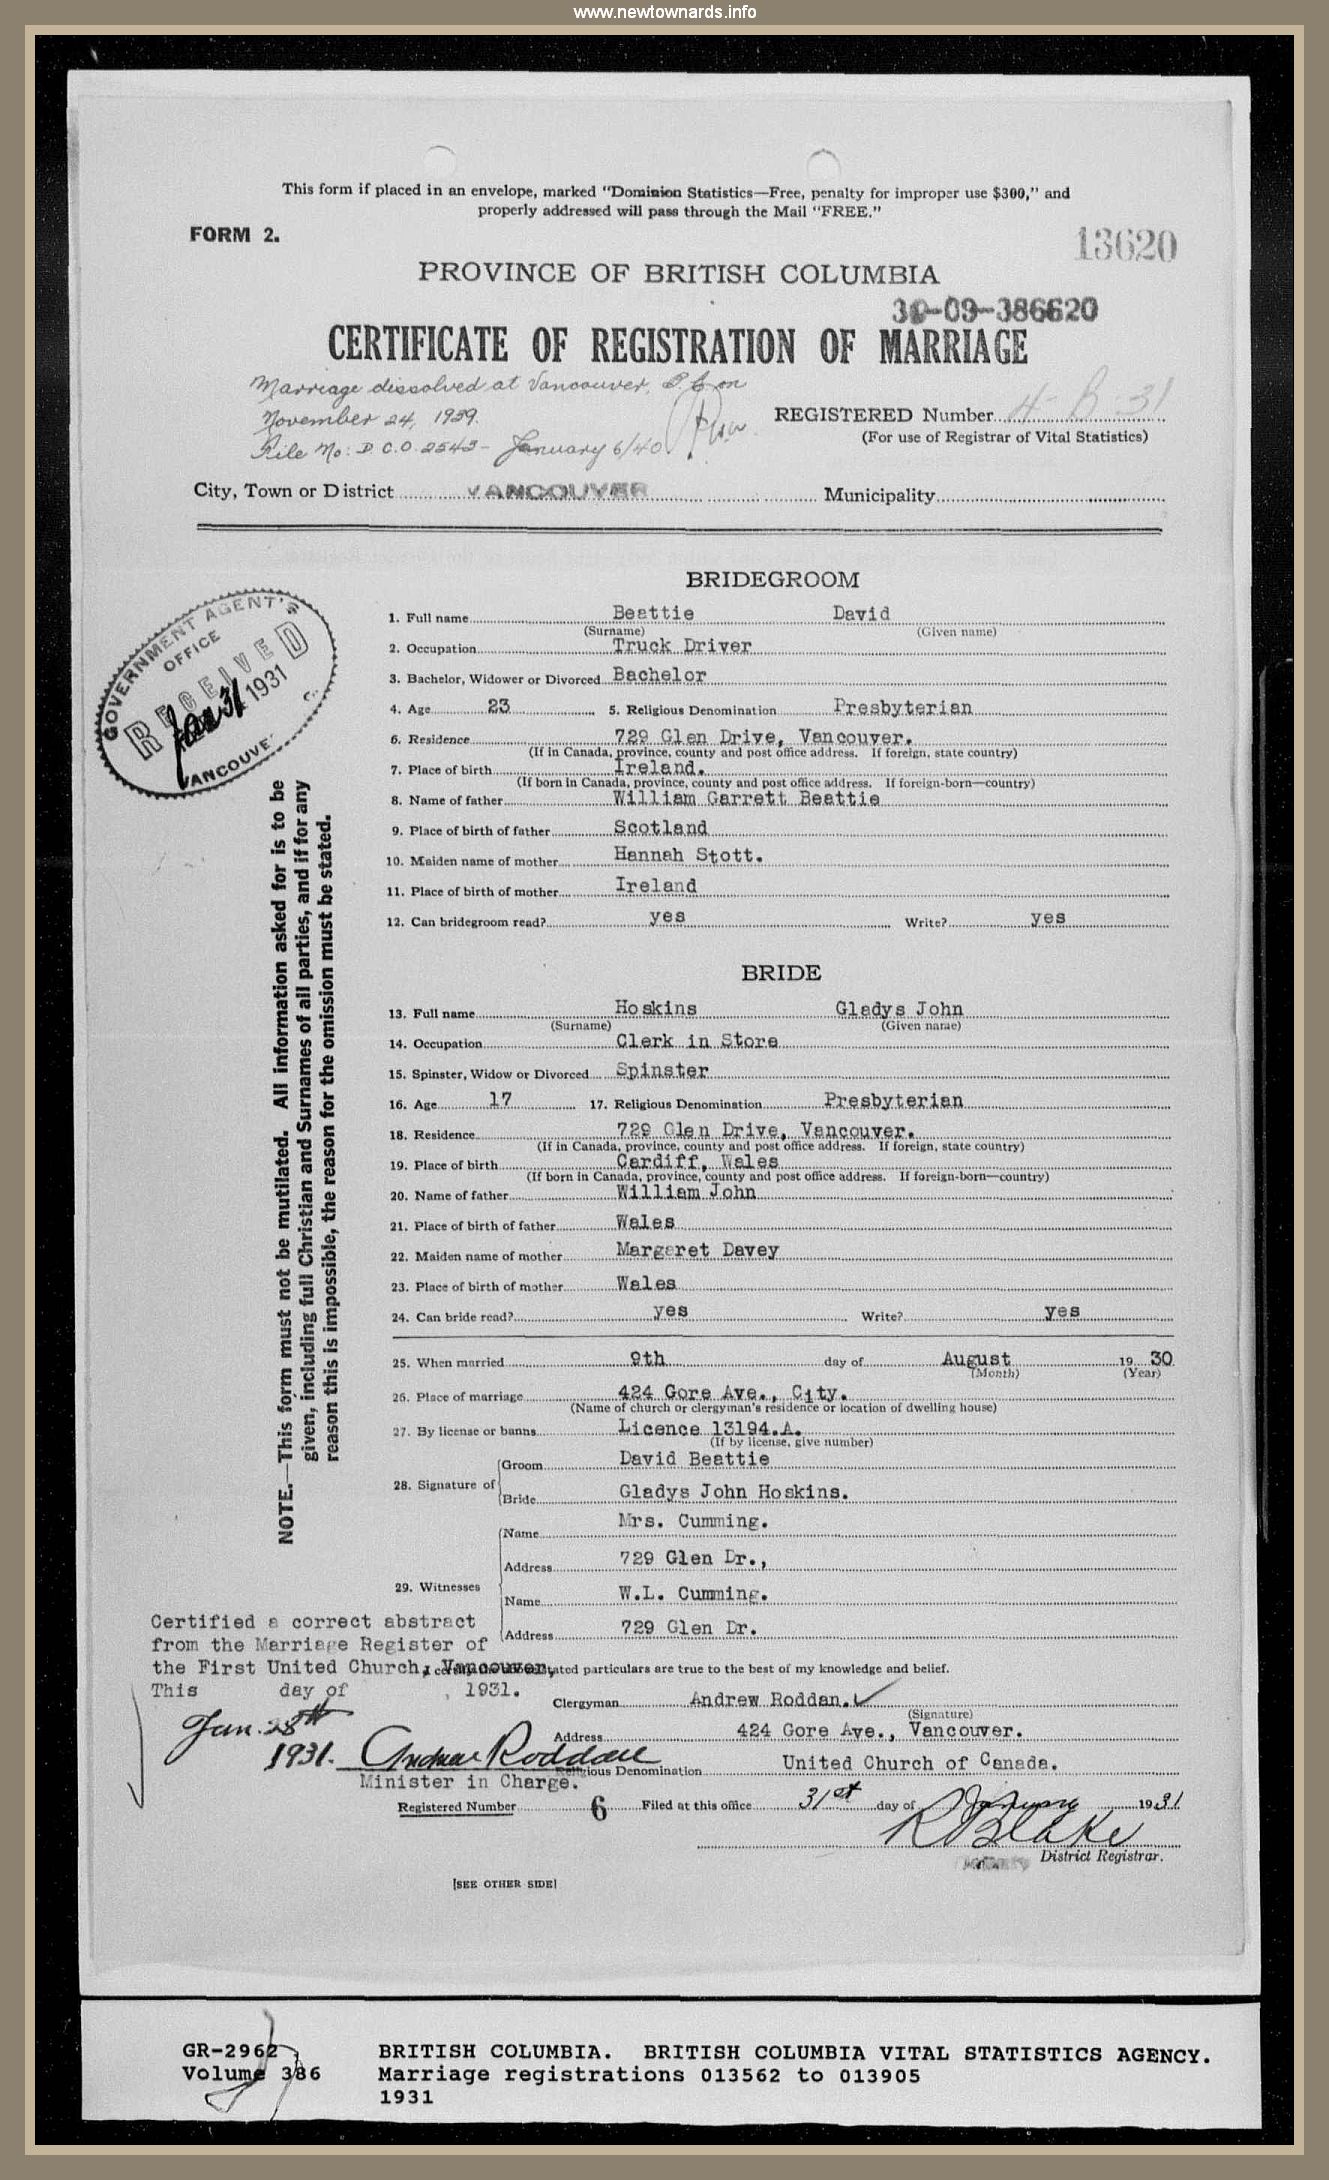 www.newtownards.info
This form if placed in an envelope, marked "Dominion Statistics—Free, penalty for improper use $300," and
properly addressed will pass through the Mail "FREE."
FORM 2.
13620
PROVINCE OF BRITISH COLUMBIA
30-09-386620
CERTIFICATE OF REGISTRATION OF MARRIAGE
Marriage dissolved at Vancouver, B.C. on
November 24, 1939.
File No: D.C.O. 2543 - January 6/40
REGISTERED Number 4-B-31
(For use of Registrar of Vital Statistics)
City, Town or District VANCOUVER Municipality
GOVERNMENT AGENT'S
OFFICE
RECEIVED
Jan 31 1931
VANCOUVER
NOTE.—This form must not be mutilated. All information asked for is to be
given, including full Christian and Surnames of all parties, and if for any
reason this is impossible, the reason for the omission must be stated.
BRIDEGROOM
1. Full name Beattie David
(Surname) (Given name)
2. Occupation Truck Driver
3. Bachelor, Widower or Divorced Bachelor
4. Age 23 5. Religious Denomination Presbyterian
6. Residence 729 Glen Drive, Vancouver.
(If in Canada, province, county and post office address. If foreign, state country)
7. Place of birth Ireland.
(If born in Canada, province, county and post office address. If foreign-born—country)
8. Name of father William Garrett Beattie
9. Place of birth of father Scotland
10. Maiden name of mother Hannah Stott.
11. Place of birth of mother Ireland
12. Can bridegroom read? yes Write? yes
BRIDE
13. Full name Hoskins Gladys John
(Surname) (Given name)
14. Occupation Clerk in Store
15. Spinster, Widow or Divorced Spinster
16. Age 17 17. Religious Denomination Presbyterian
18. Residence 729 Glen Drive, Vancouver.
(If in Canada, province, county and post office address. If foreign, state country)
19. Place of birth Cardiff, Wales
(If born in Canada, province, county and post office address. If foreign-born—country)
20. Name of father William John
21. Place of birth of father Wales
22. Maiden name of mother Margaret Davey
23. Place of birth of mother Wales
24. Can bride read? yes Write? yes
25. When married 9th day of August 19 30
(Month) (Year)
26. Place of marriage 424 Gore Ave., City.
(Name of church or clergyman's residence or location of dwelling house)
27. By license or banns Licence 13194.A.
(If by license, give number)
28. Signature of
Groom David Beattie
Bride Gladys John Hoskins.
29. Witnesses
Name Mrs. Cumming.
Address 729 Glen Dr.,
Name W.L. Cumming.
Address 729 Glen Dr.
Certified a correct abstract
from the Marriage Register of
the First United Church, Vancouver, stated particulars are true to the best of my knowledge and belief.
This day of , 1931.
Jan. 28th
1931. Andrew Roddan
Minister in Charge.
Clergyman Andrew Roddan.
(Signature)
Address 424 Gore Ave., Vancouver.
Religious Denomination United Church of Canada.
Registered Number 6 Filed at this office 31st day of January 1931
R Blake
District Registrar.
[SEE OTHER SIDE]
GR-2962
Volume 386
BRITISH COLUMBIA. BRITISH COLUMBIA VITAL STATISTICS AGENCY.
Marriage registrations 013562 to 013905
1931